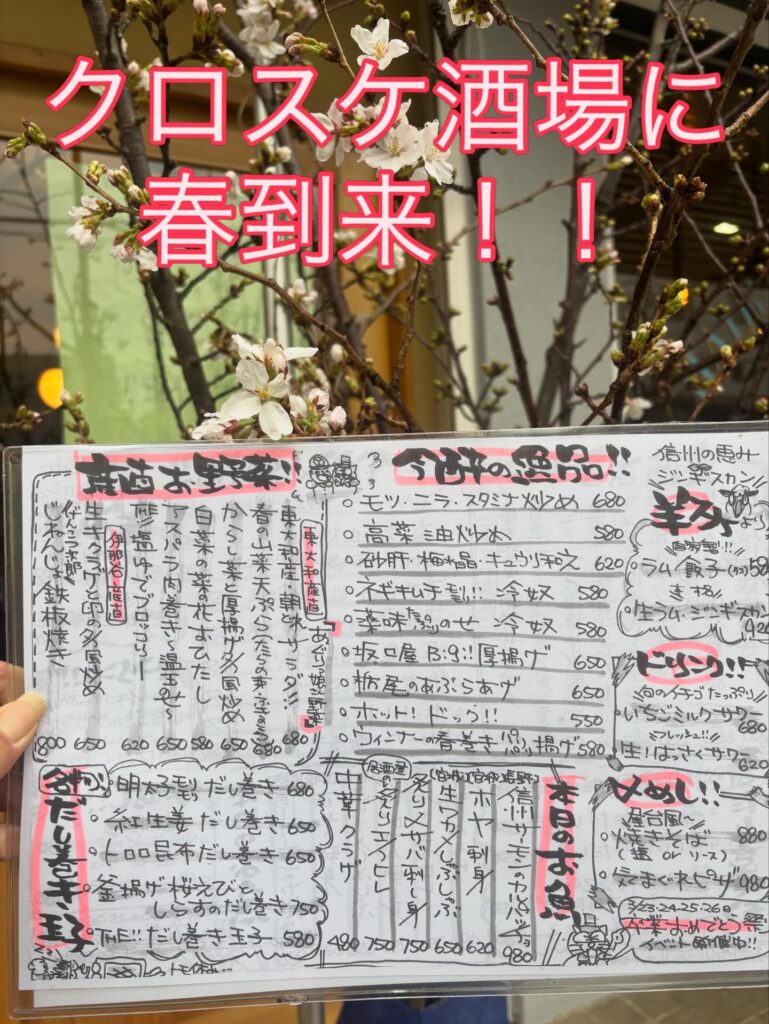 クロスケ酒場に
春到来！！
産直お野菜!!
東大和産直
おぐり娘の野菜
東大和産・朝どれサラダ!! 680
春の山菜天ぷら 680
からし菜と厚揚げ 炒め 650
白菜の菜の花おひたし 580
アスパラ肉巻き〜温玉のせ〜 650
THE!! 塩ゆでブロッコリー 620
伊那谷産直
生キクラゲと卵の 炒め 650
じねんじょ鉄板焼き 800
各種
だし巻き玉子
明太子 だし巻き 680
紅生姜 だし巻き 650
トロロ昆布だし巻き 650
釜揚げ桜えびと
しらすのだし巻き 750
THE!! だし巻き玉子 580
今酔の逸品!!
モツ・ニラ・スタミナ炒め 680
高菜油炒め 580
砂肝・梅水晶・キュウリ和え 620
ネギキムチモリ!! 冷奴 580
薬味たっぷりのせ 冷奴 580
坂口屋 Big!! 厚揚げ 650
栃尾のあぶらあげ 650
ホット！ドッグ!! 550
ウィンナーの春巻き パリパリ揚げ 580
本日のお魚
信州サーモンのカルパッチョ 980
ホヤ刺身 620
生ワカメしゃぶしゃぶ 650
炙り〆サバ刺し身 750
居酒屋の 炙りエイヒレ 750
中華クラゲ 480
信州の恵み
ジンギスカン!
自家製!!
ラム餃子 580
生ラム・ジンギスカン 920
ドリンク!!
旬のイチゴたっぷり
いちごミルクサワー 680
フレッシュ!!
生！はっさくサワー 620
〆めし!!
屋台風〜
焼きそば 880
(塩 or ソース)
気まぐれピザ 980
3/23・24・25・26日
卒業おめでとう祭
イベント開催中!!